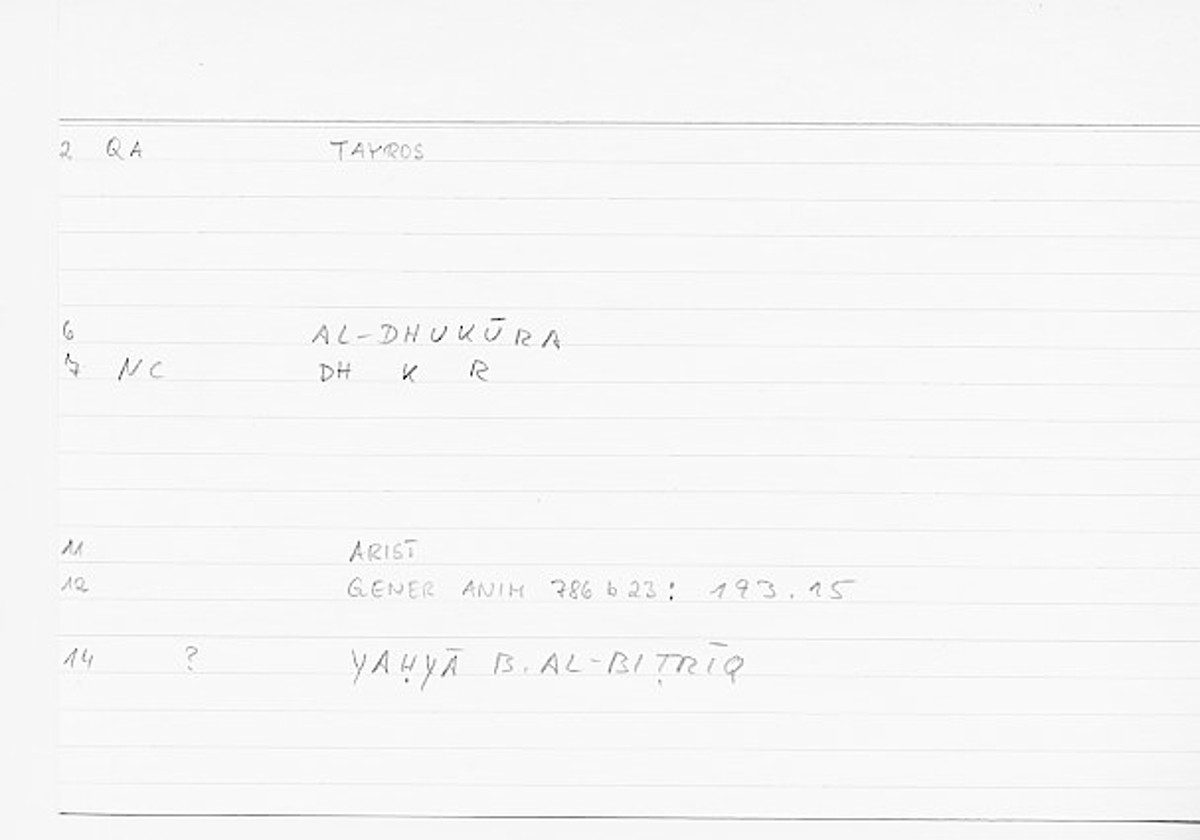 2 QA TAYROS
6 AL-DHUKŪRA
7 NC DH K R
11 ARIST
12 GENER ANIM 786 b 23: 193.15
14 ? YAḤYĀ B. AL-BIṬRĪQ